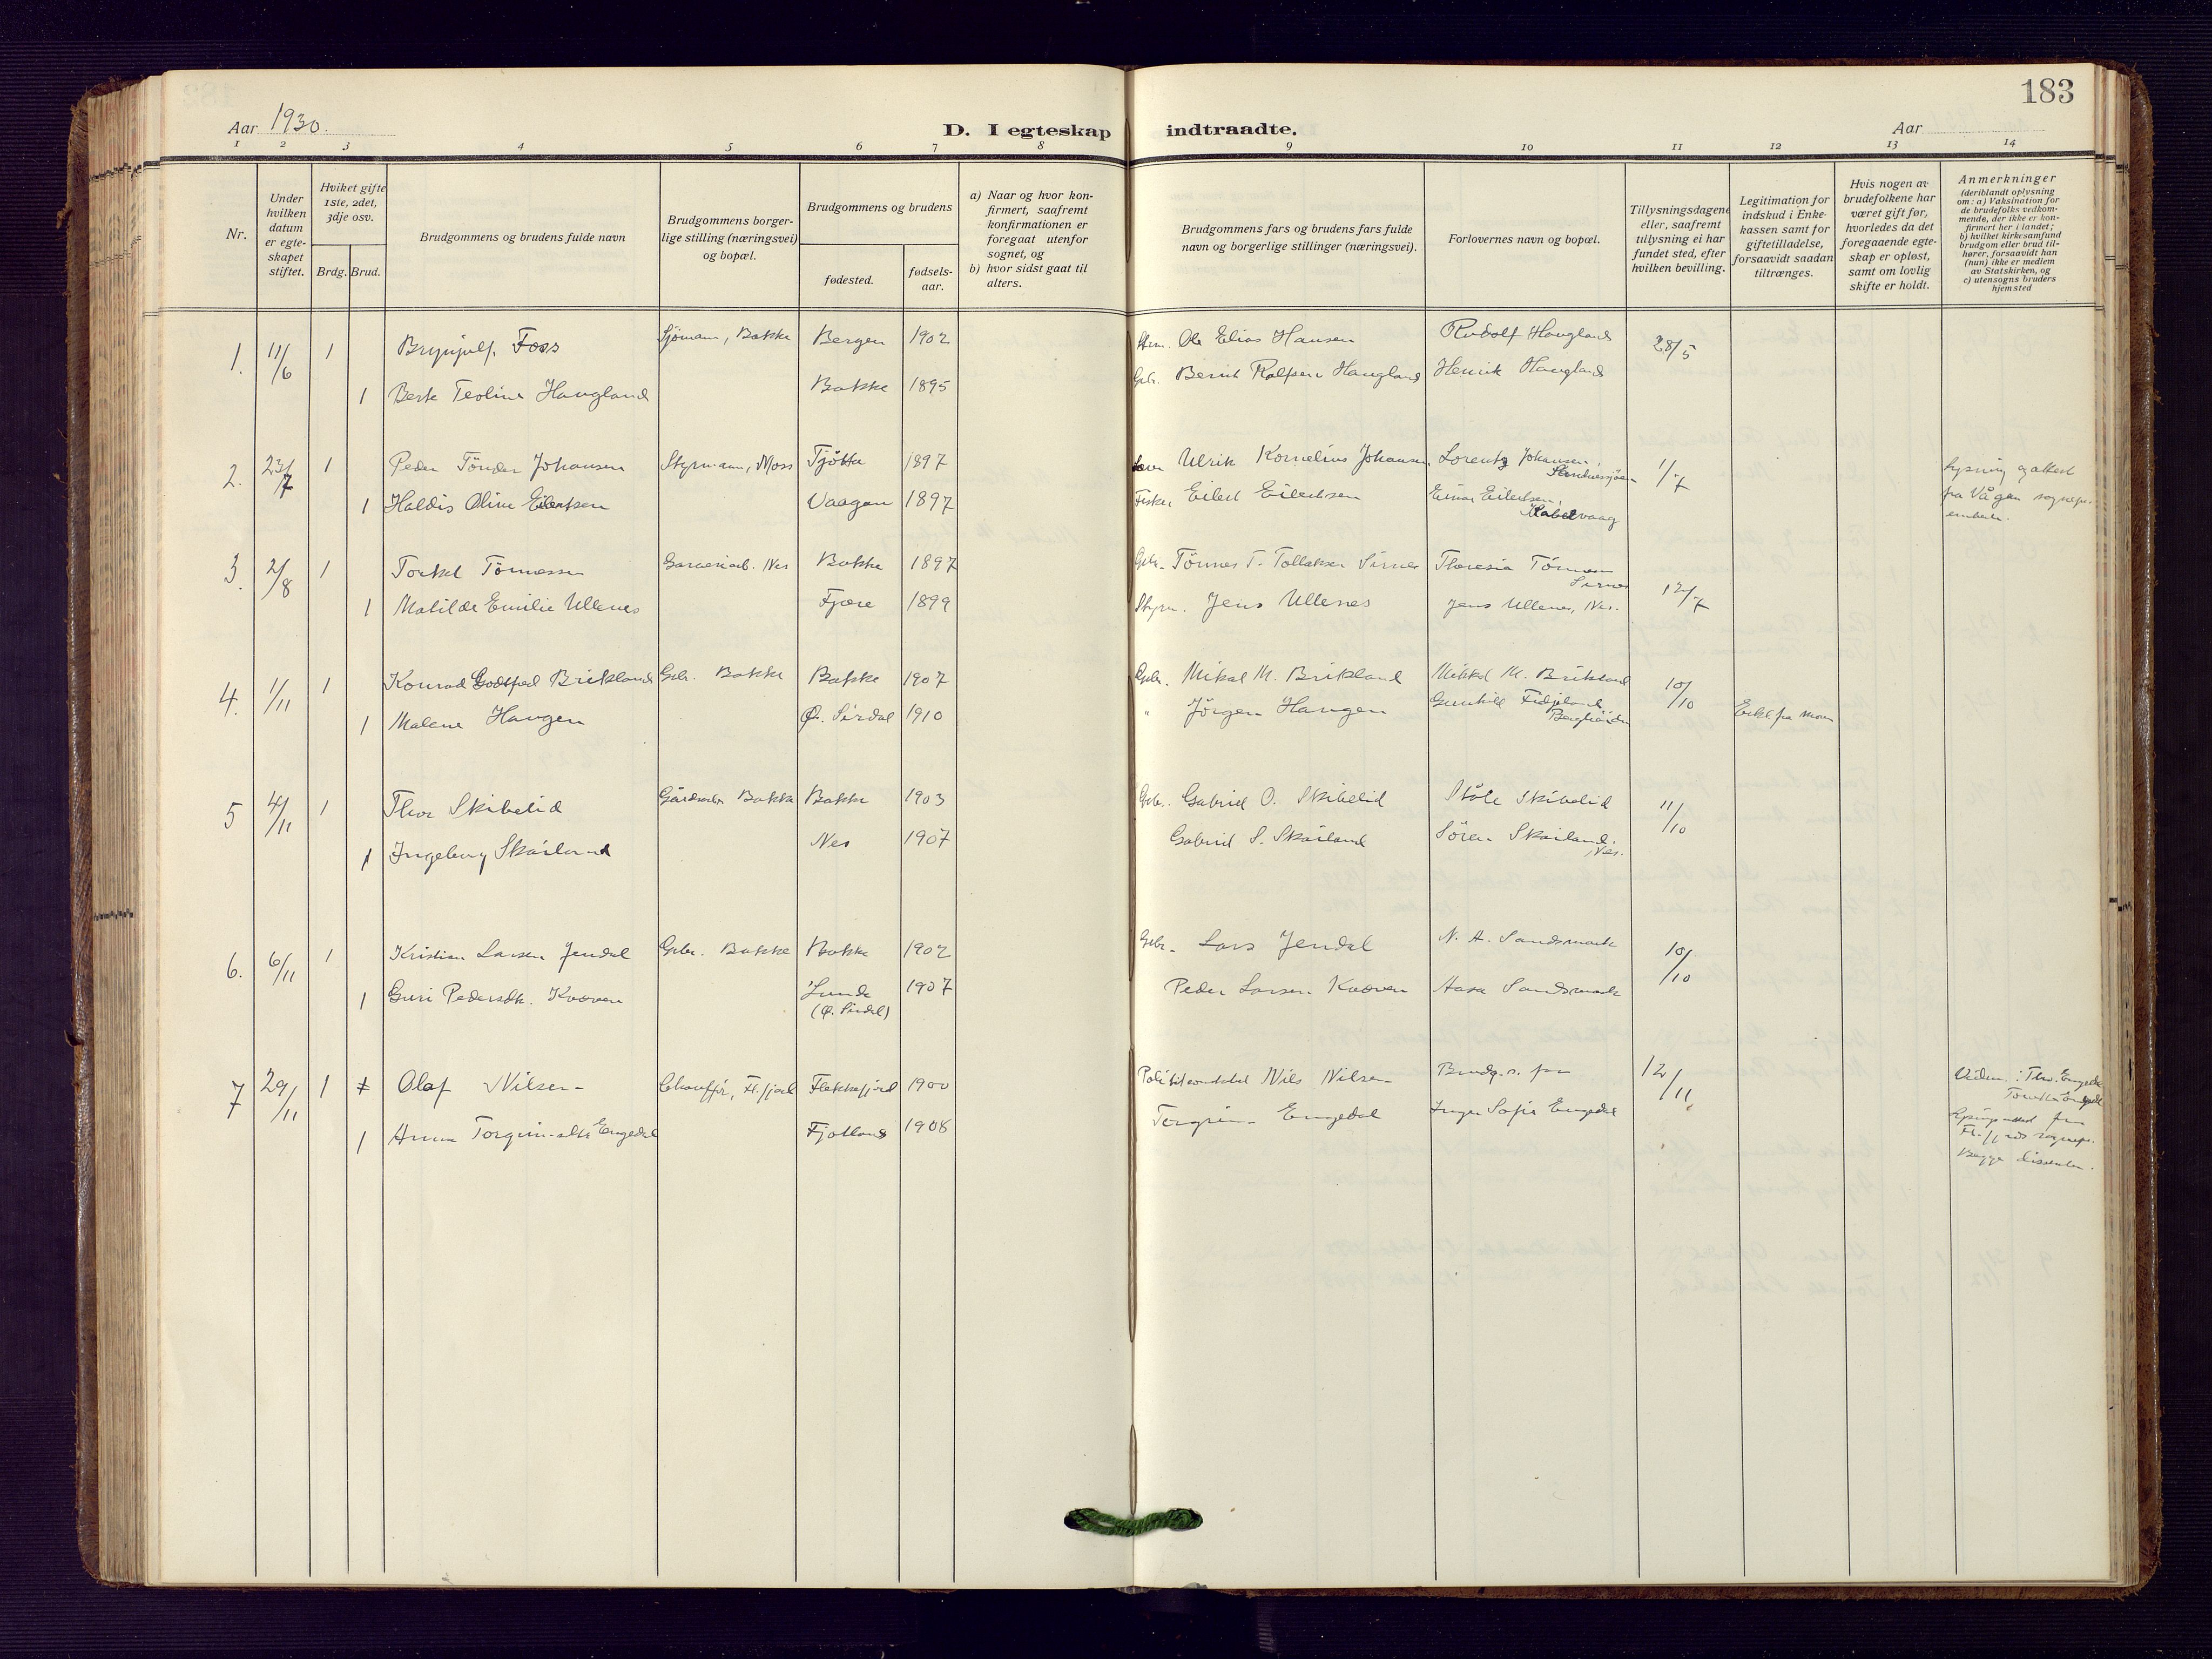 183
Aar 1930.
D. I egteskap indtraadte.
Aar
1 2 3 4 5 6 7 8 9 10 11 12 13 14
Nr.
Under hvilken datum er egteskapet stiftet.
Hvilket gifte 1ste, 2det, 3dje osv.
Brdg. Brud.
Brudgommens og brudens fulde navn
Brudgommens borgerlige stilling (næringsvei) og bopæl.
Brudgommens og brudens
fødested.
fødselsaar.
a) Naar og hvor konfirmert, saafremt konfirmationen er foregaat utenfor sognet, og
b) hvor sidst gaat til alters.
Brudgommens fars og brudens fars fulde navn og borgerlige stillinger (næringsvei).
Forlovernes navn og bopæl.
Tillysningsdagene eller, saafremt tillysning ei har fundet sted, efter hvilken bevilling.
Legitimation for indskud i Enkekassen samt for giftetilladelse, forsaavidt saadan tiltrænges.
Hvis nogen av brudefolkene har været gift før, hvorledes da det foregaaende egteskap er opløst, samt om lovlig skifte er holdt.
Anmerkninger
(deriblandt oplysning om: a) Vaksination for de brudefolks vedkommende, der ikke er konfirmert her i landet; b) hvilket kirkesamfund brudgom eller brud tilhører, forsaavidt han (hun) ikke er medlem av Statskirken, og c) utensogns bruders hjemsted
1. 11/6 1 Brynjulf Foss Sjömann, Bakke Bergen 1902 Ole Elias Hansen Rudolf Haugland 28/5
1 Berte Teoline Haugland Bakke 1895 Gbr. Berent Rolfsen Haugland Henrik Haugland
2. 23/7 1 Peder Tönder Johansen Styrmann, Moss Tjötta 1897 Ulrik Kornelius Johansen Lorentz Johansen, Sandnessjöen 1/7 Lysningsattest
1 Haldis Oline Eilertsen Vaagan 1897 Fisker Eilert Eilertsen Einar Eilertsen, Kabelvaag fra Vågan sognepr. embede.
3. 2/8 1 Torkel Tönnessen Garveriarb. Nes Bakke 1897 Gbr. Tönnes T. Tollaksen Sirnes Theresia Tönnessen Sirnes 12/7
1 Matilde Emilie Ullenes Fjære 1899 Styrm. Jens Ullenes Jens Ullenes, Nes.
4. 1/11 1 Konrad Godtfred Birkeland Gbr. Bakke Bakke 1907 Gbr. Mikal M. Birkeland Mikkel M. Birkeland 10/10
1 Malene Haugen Ø. Sirdal 1910 " Jörgen Haugen Gunhild Fidjeland Erkl. fra Moren
5 4/11 1 Thor Skibelid Gårdsarb. Bakke Bakke 1903 Gbr. Gabriel O. Skibelid Ståle Skibelid 11/10
1 Ingeborg Skailand Nes 1907 Gabriel S. Skailand Sören Skailand. Nes.
6. 6/11 1 Kristian Larsen Jendal Gbr. Bakke Bakke 1902 Gbr. Lars Jendal N. A. Sandsmark 10/10
1 Guri Pedersdtr. Kvæven Lunde (Ø. Sirdal) 1907 Peder Larsen Kvæven Aasa Sandsmark
7 29/11 1 Olaf Nilsen Chaufför, Fl.fjord Flekkefjord 1900 Nils Nilsen Brudg. s. far 12/11
1 Anna Torgrimsdtr Engedal Fjotland 1908 Torgrim Engedal Inger Sofie Engedal
Lysningsattest fra
Fl.fjords sognepr.
Begge dissenter.